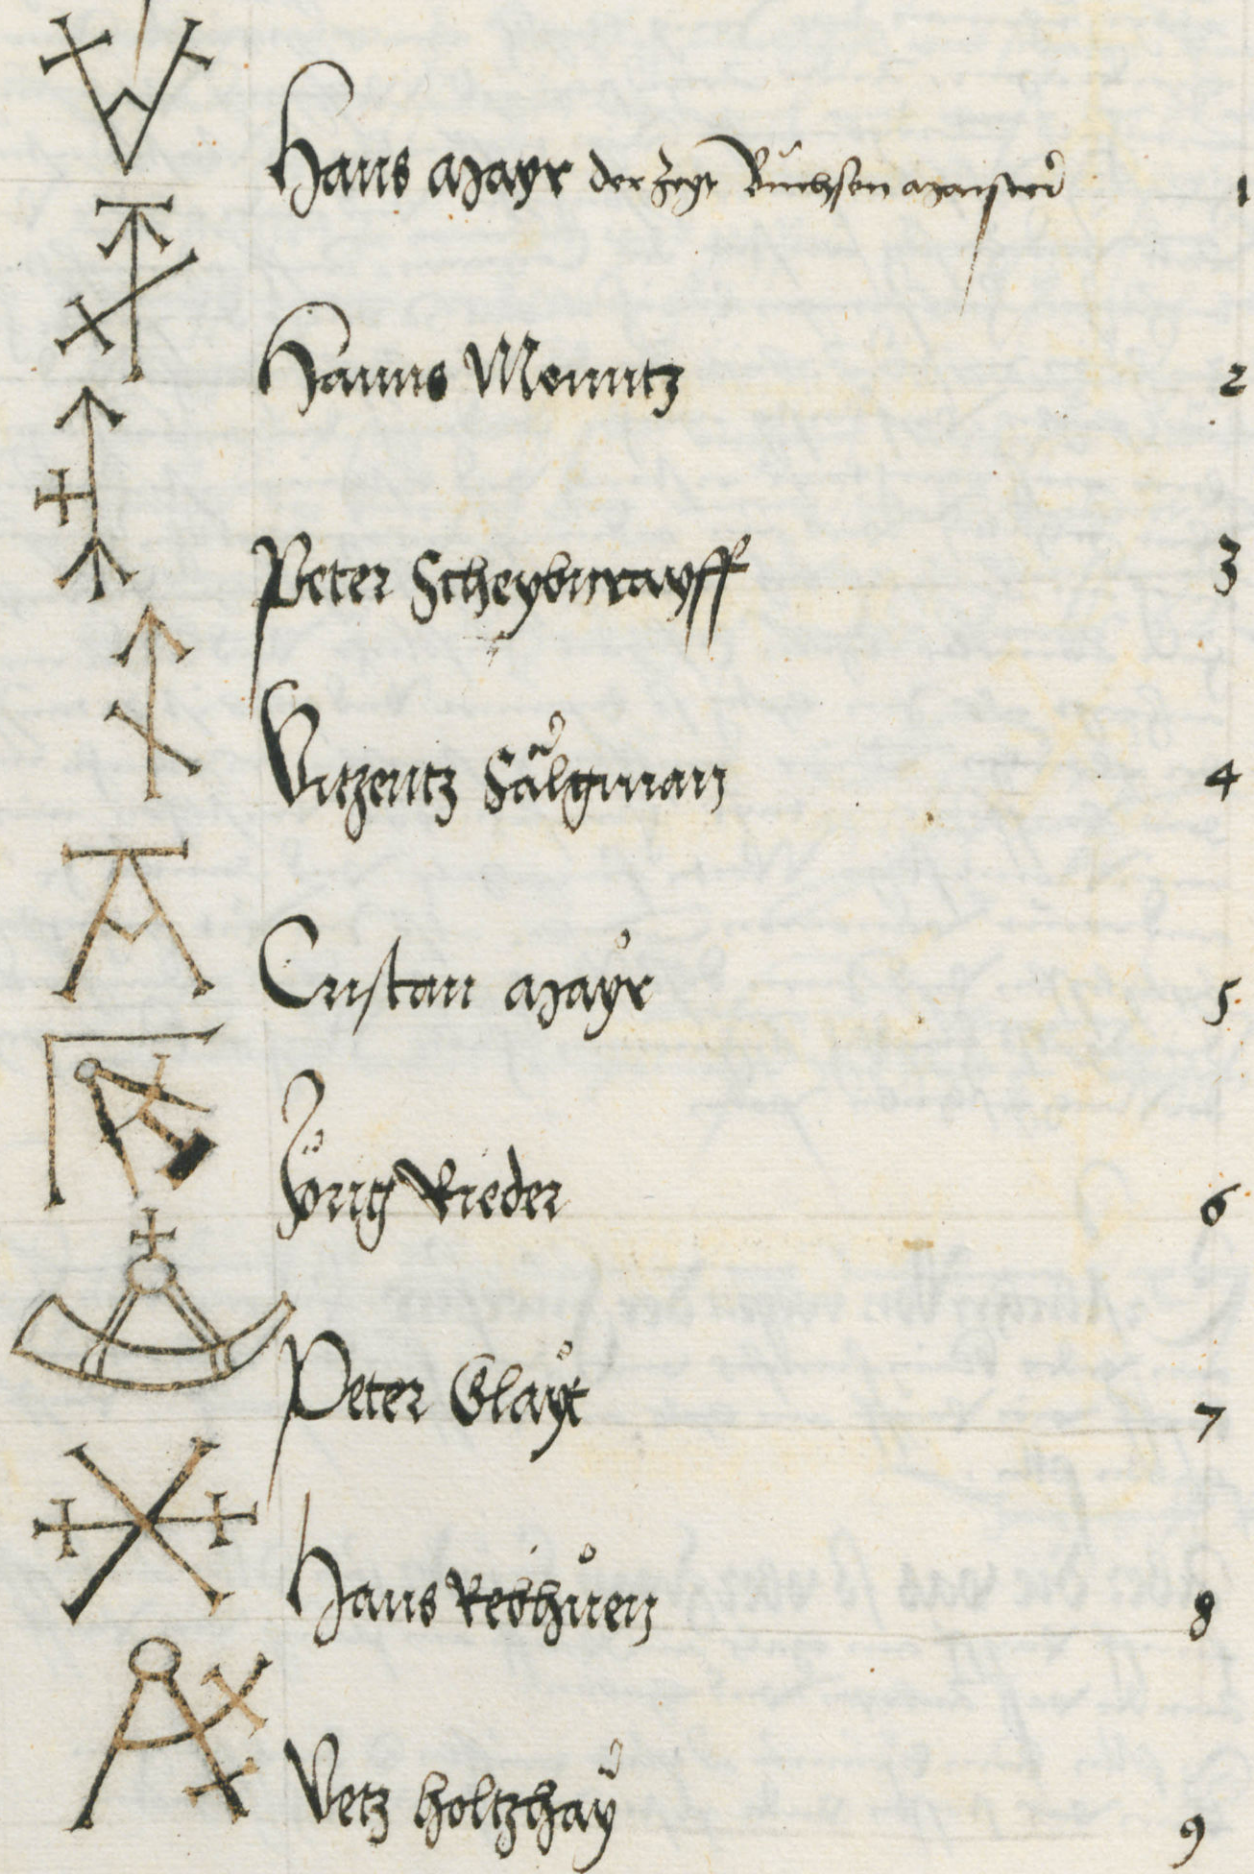 Hans Mayr der Zeyt Büchsenmaister 1
Hanns Memitz 2
Peter Scheyburayff 3
Vitzentz Sälgman 4
Cristan Mayr 5
Jörig Rieder 6
Peter Glayt 7
Hans Rebhuen 8
Vetz Holtzhay 9